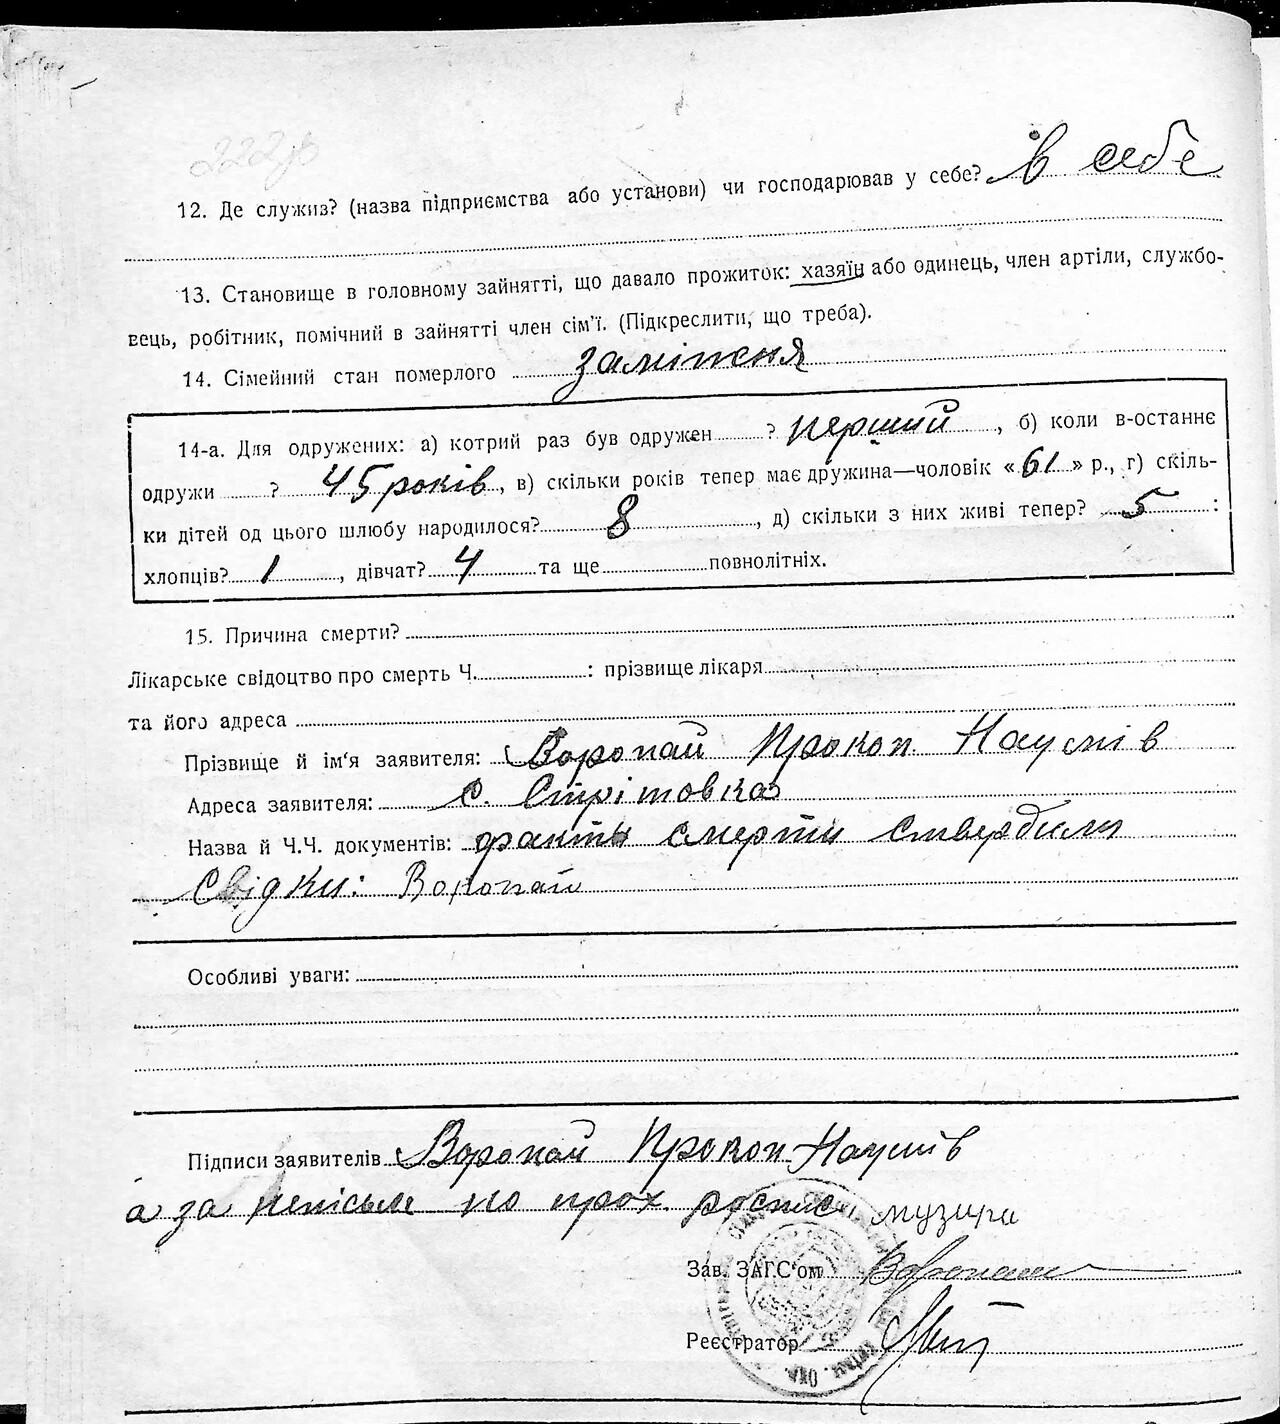 222зв
12. Де служив? (назва підприємства або установи) чи господарював у себе? в себе
13. Становище в головному зайнятті, що давало прожиток: хазяїн або одинець, член артіли, службо-
вець, робітник, помічний в зайнятті член сім'ї. (Підкреслити, що треба).
14. Сімейний стан померлого заміженя
14-а. Для одружених: а) котрий раз був одружен ? перший, б) коли в-останнє
одружи ? 45 років, в) скільки років тепер має дружина—чоловік «61» р., г) скіль-
ки дітей од цього шлюбу народилося? 8, д) скільки з них живі тепер? 5:
хлопців? 1, дівчат? 4 та ще повнолітніх.
15. Причина смерти?
Лікарське свідоцтво про смерть Ч. : прізвище лікаря
та його адреса
Прізвище й ім'я заявителя: Воропай Прокоп Наумів
Адреса заявителя: с. Стрітовка
Назва й Ч.Ч. документів: факты смерти ствердили
Свідки: Воропай
Особливі уваги:
Підписи заявителів Воропай Прокоп Наумів
а за непісьм по прох. роспис музира
Зав. ЗАГС'ом Воропай
Реєстратор